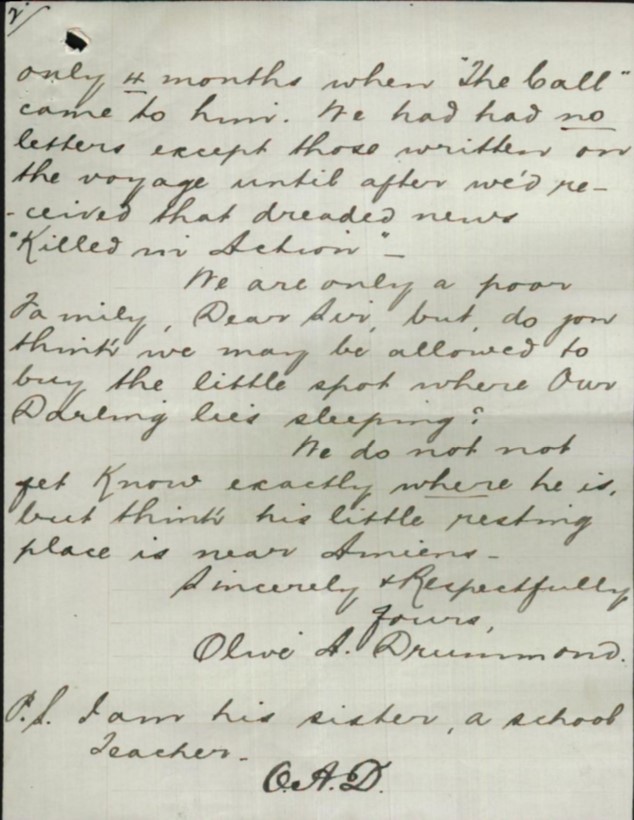 2/
only 4 months when "The Call"
came to him. We had had no
letters except those written on
the voyage until after we'd re-
-ceived that dreaded news
"Killed in Action" -
We are only a poor
Family, Dear Sir, but, do you
think we may be allowed to
buy the little spot where Our
Darling lies sleeping?
We do not not
yet Know exactly where he is,
but think his little resting
place is near Amiens -
Sincerely & Respectfully
Yours,
Olive A. Drummond.
P.S. I am his sister, a school
Teacher -
O.A.D.